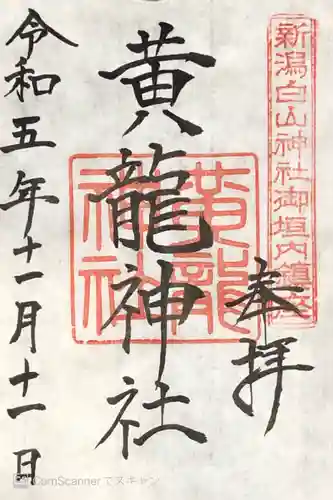 新潟白山神社御垣内鎮座
奉拝
黄龍神社
黄龍神社
令和五年十一月十一日
CamScannerでスキャン